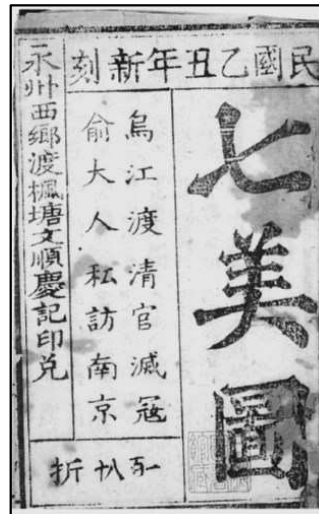 民國乙丑年新刻
七美圖
烏江渡清官滅寇
俞大人私訪南京
折
永州西鄉渡楓塘文順慶記印兑